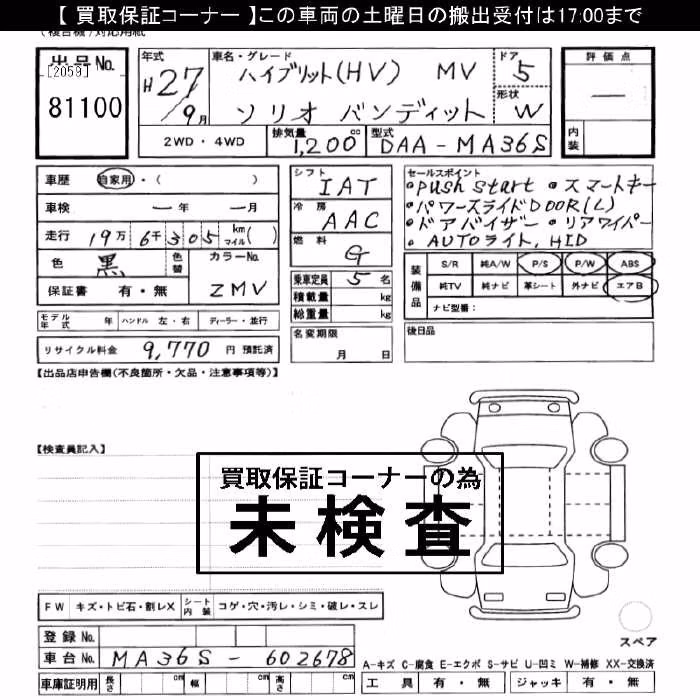 【 買取保証コーナー 】この車両の土曜日の搬出受付は17:00まで
出品No.
[2059]
81100
年式
H 27/9月
車名・グレード
ハイブリット(HV) MV
ソリオ バンディット
ドア
5
形状
W
評価点
—
内装
2WD・4WD
排気量 1,200 cc
型式 DAA-MA36S
車歴 自家用・( )
車検 ー年 ー月
走行 19万 6千 305 km マイル( )
色 黒 色替
カラーNo. ZMV
保証書 有・無
シフト IAT
冷房 AAC
燃料 G
乗車定員 5 名
積載量 kg
総重量 kg
セールスポイント
•Push start •スマートキー
•パワースライドDOOR(L)
•ドアバイザー •リアワイパー
•AUTOライト, HID
装備品
S/R 純A/W P/S P/W ABS
純TV 純ナビ 革シート 外ナビ エアB
ナビ型番:
モデル年式 年 ハンドル 左・右 ディーラー・並行
リサイクル料金 9,770 円 預託済
名変期限
月 日
後日品
【出品店申告欄(不良箇所・欠品・注意事項等)】
【検査員記入】
買取保証コーナーの為
未検査
FW キズ・トビ石・割レX シート内装 コゲ・穴・汚レ・シミ・破レ・スレ
スペア
登録No.
車台No. MA36S-602678
車庫証明用 長さ cm 幅 cm 高さ cm
A-キズ C-腐食 E-エクボ S-サビ U-凹ミ W-補修 XX-交換済
工具 有・無 ジャッキ 有・無